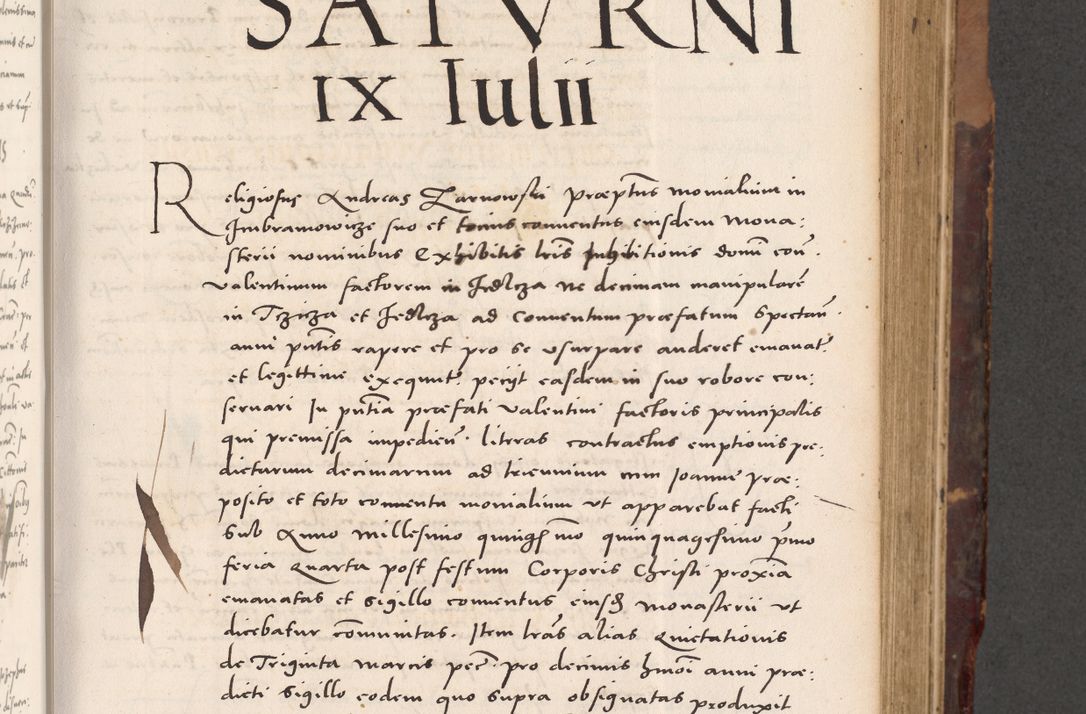 SATVRNI
IX Iulii
Religiosus Andreas Zarnowski præptus monialium in
Imbramowicze suo et totius conuentus eiusdem mona:
sterii nominibus Exhibitis lris Inhibitionis donū coñ.
Valentinum factorem in Jedlcza ne decimam manipularē
in Trzicza et Jedlcza ad Conuentum præfatum Spectañ.
anni pntis rapere et pro se vsurpare auderet emanat:
et legittime exequut: pecijt easdem in suo robore con:
seruari In pntia præfati Valentini factoris principalis
qui premissa impedieñ. litteras contractus emptionis pre:
dictarum decimarum ad triennium cum Joanne Præ:
posito et toto conuentu monialium vt apparebat facti
Sub Anno Millesimo quingēmo quinquagesimo pmo
feria Quarta post festum Corporis Christi proxīa
emanatas et Sigillo conuentus eiusd monasterii vt
dicebatur cōmunitas. Item lras alias Quietationis
de Triginta marcis pec: pro decimis hmōi anni præ:
dicti Sigillo eodem quo supra obsignatas produxit